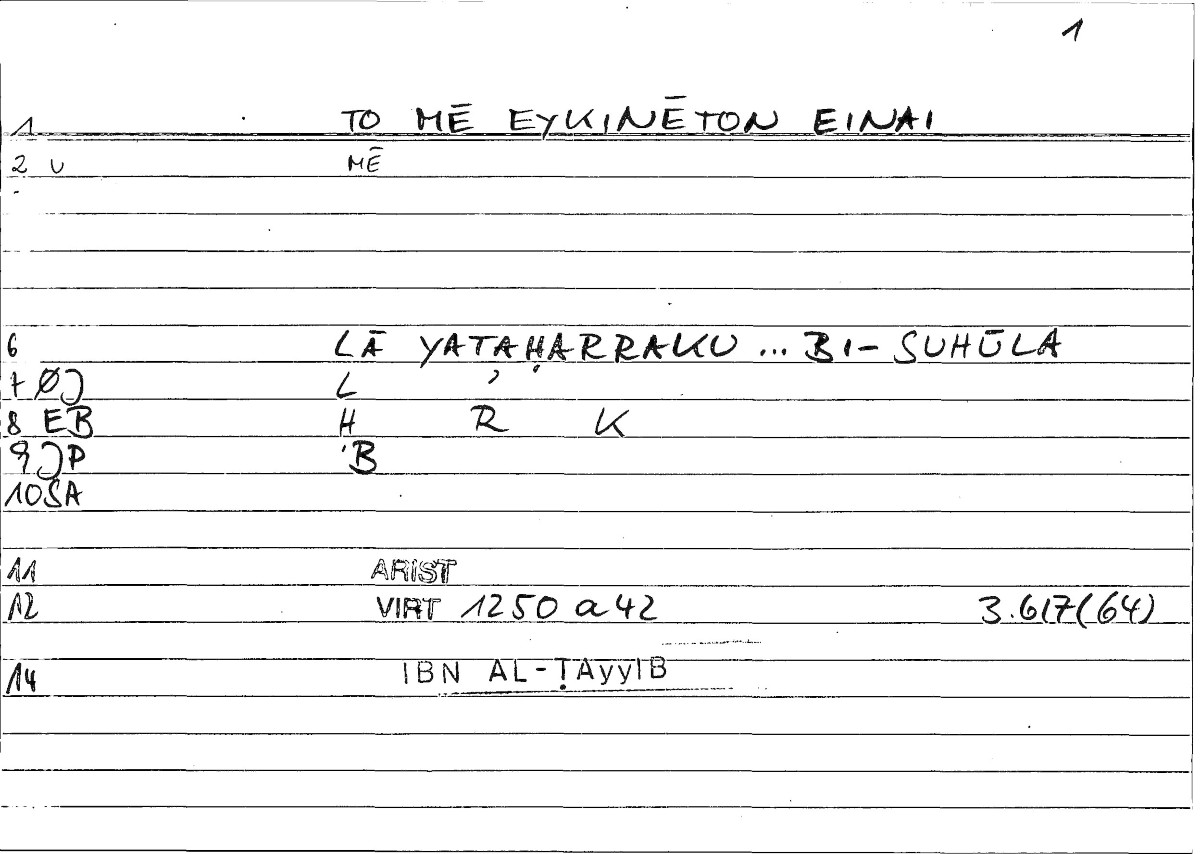 1
1 TO MĒ EYKINĒTON EINAI
2 U MĒ
6 LĀ YATAḤARRAKU ... BI- SUHŪLA
7 ØJ L ʾ
8 EB Ḥ R K
9 JP B
10 SA
11 ARIST
12 VIRT 1250 a 42 3.617(64)
14 IBN AL-ṬAyyIB